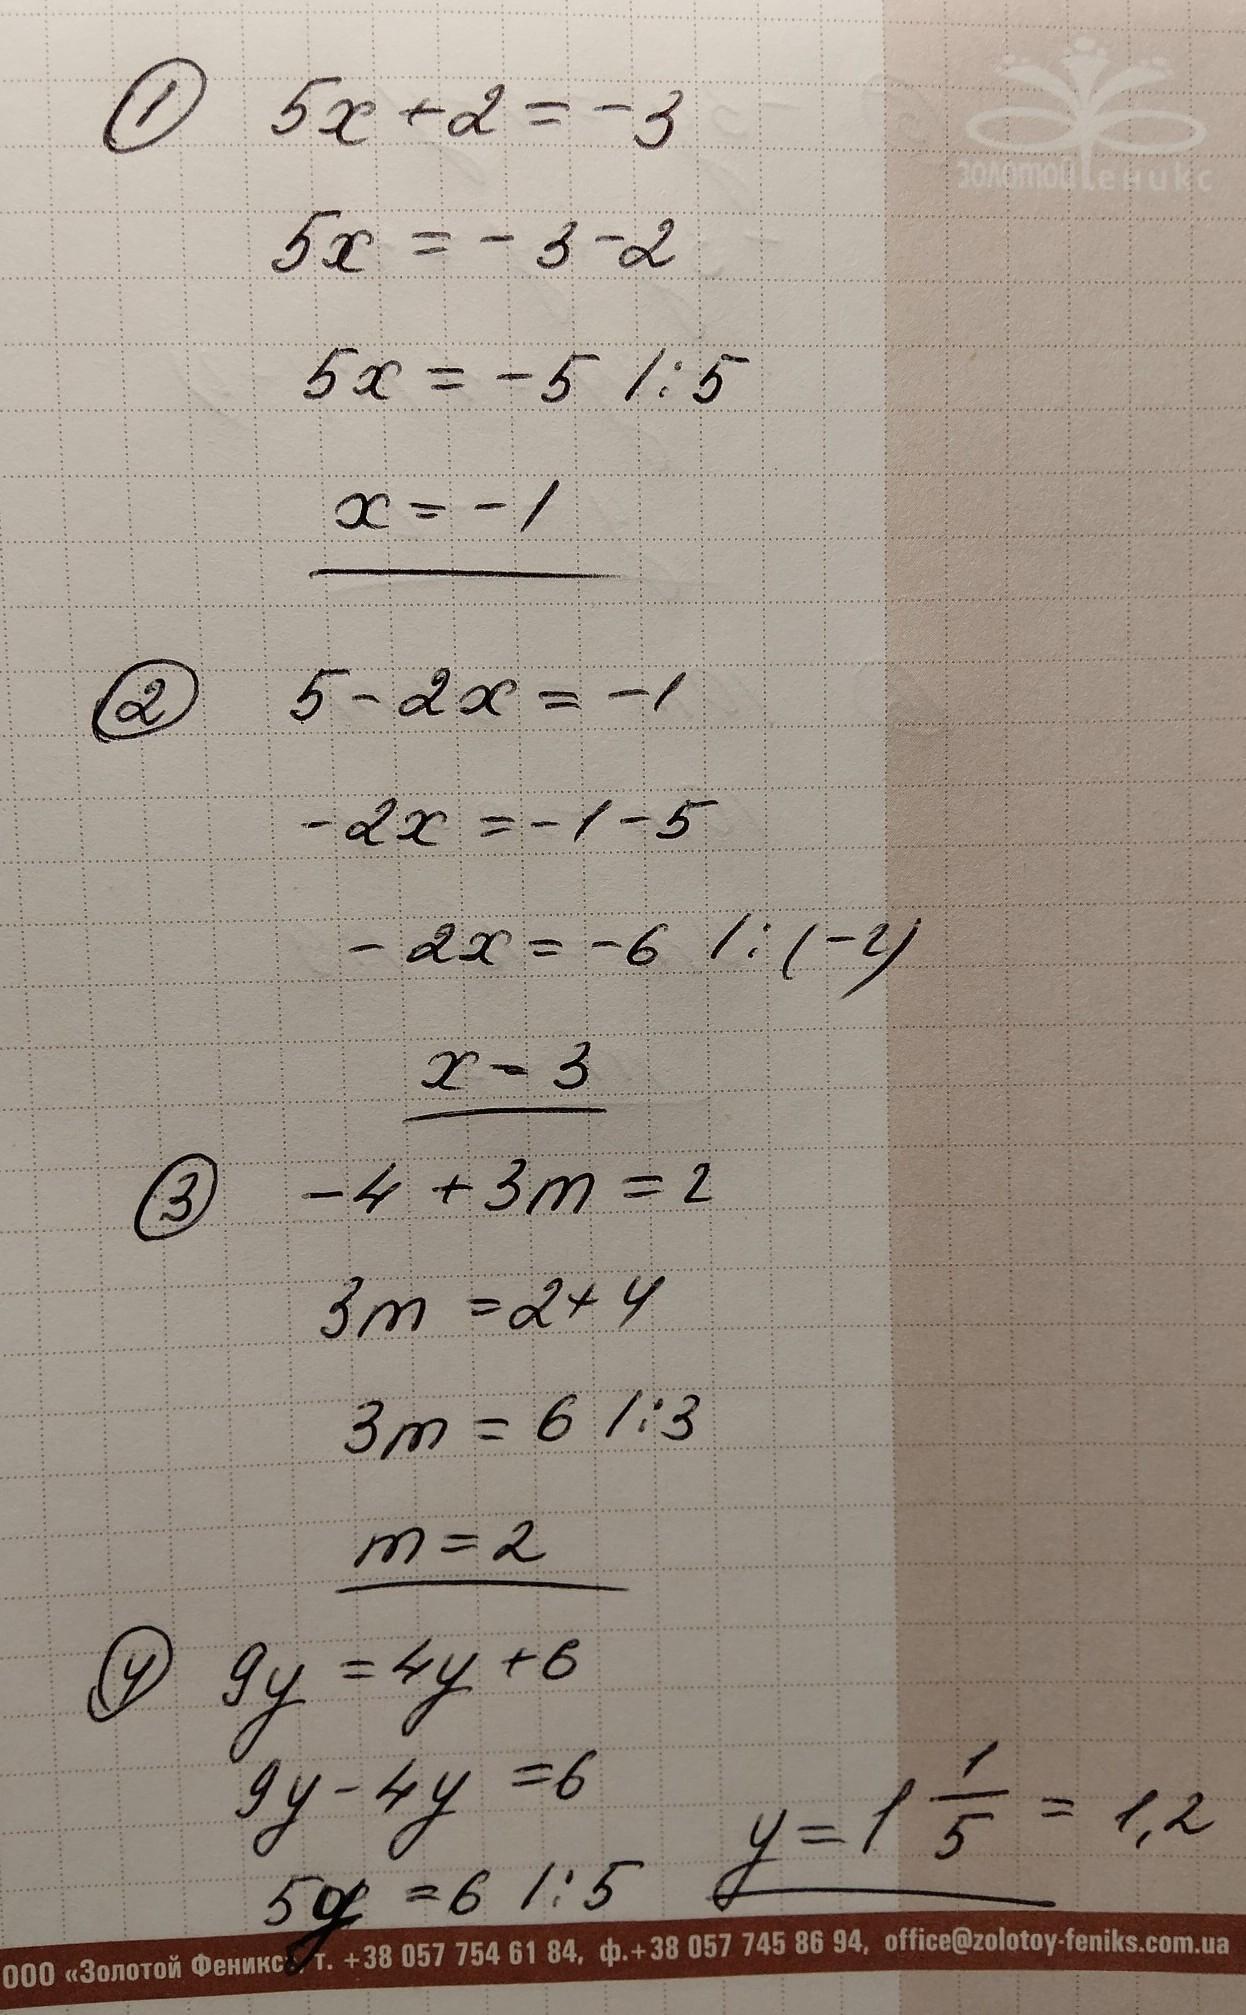 золотой феникс
① 5x + 2 = -3
5x = -3 -2
5x = -5 /:5
x = -1
② 5 - 2x = -1
-2x = -1 -5
-2x = -6 /:(-2)
x - 3
③ -4 + 3m = 2
3m = 2 + 4
3m = 6 /:3
m = 2
④ 9y = 4y + 6
9y - 4y = 6
5y = 6 /:5
y = 1 1/5 = 1,2
ООО «Золотой Феникс», т. +38 057 754 61 84, ф.+38 057 745 86 94, office@zolotoy-feniks.com.ua